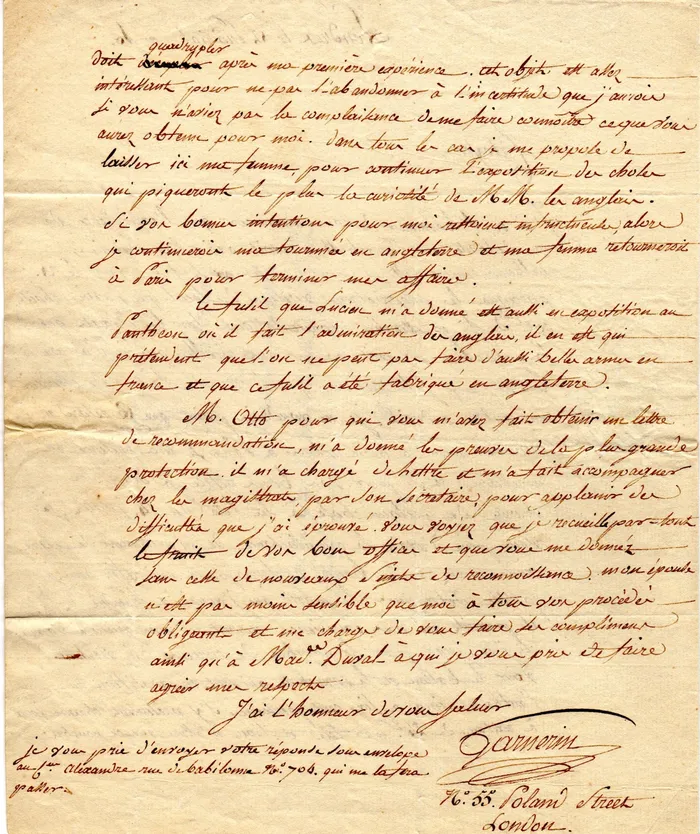 quadrupler
doit après ma première expérience. cet objet est assez
intéressant pour ne pas l'abandonner à l'incertitude que j'aurois
si vous n'aviez pas la complaisance de me faire connoitre ce que vous
aurez obtenu pour moi. dans tous les cas je me propose de
laisser ici ma femme, pour continuer l'exposition des choses
qui piqueront le plus la curiosité de M.M. les anglais.
Si vos bonnes intentions pour moi restoient infructueuses, alors
je continuerois ma tournée en angleterre et ma femme retourneroit
à Paris pour terminer mes affaires.
le fusil que Lucien m'a donné est aussi en exposition au
Pantheon où il fait l'admiration des anglais, il en est qui
prétendent que l'on ne peut pas faire d'aussi belles armes en
france et que ce fusil a été fabriqué en angleterre.
M. Otto pour qui vous m'avez fait obtenir une lettre
de recommandation, m'a donné les preuves de la plus grande
protection. il m'a chargé de lettre et m'a fait accompagner
chez les magistrats par son secrétaire, pour applanir des
difficultés que j'ai éprouvé. vous voyez que je recueille par-tout
le fruit de vos bons offices et que vous me donnez
sans cesse de nouveaux Sujets de reconnoissance. mon épouse
n'est pas moins sensible que moi à tous vos procédés
obligeants et me charge de vous faire ses complimens
ainsi qu'à Made. Duval à qui je vous prie de faire
agréer mes respects
J'ai l'honneur de vous saluer
Garnerin
je vous prie d'envoyer votre réponse sous enveloppe
au Cen. Alexandre rue de babilonne No. 704. qui me la fera
passer.
No. 55. Poland Street
London.